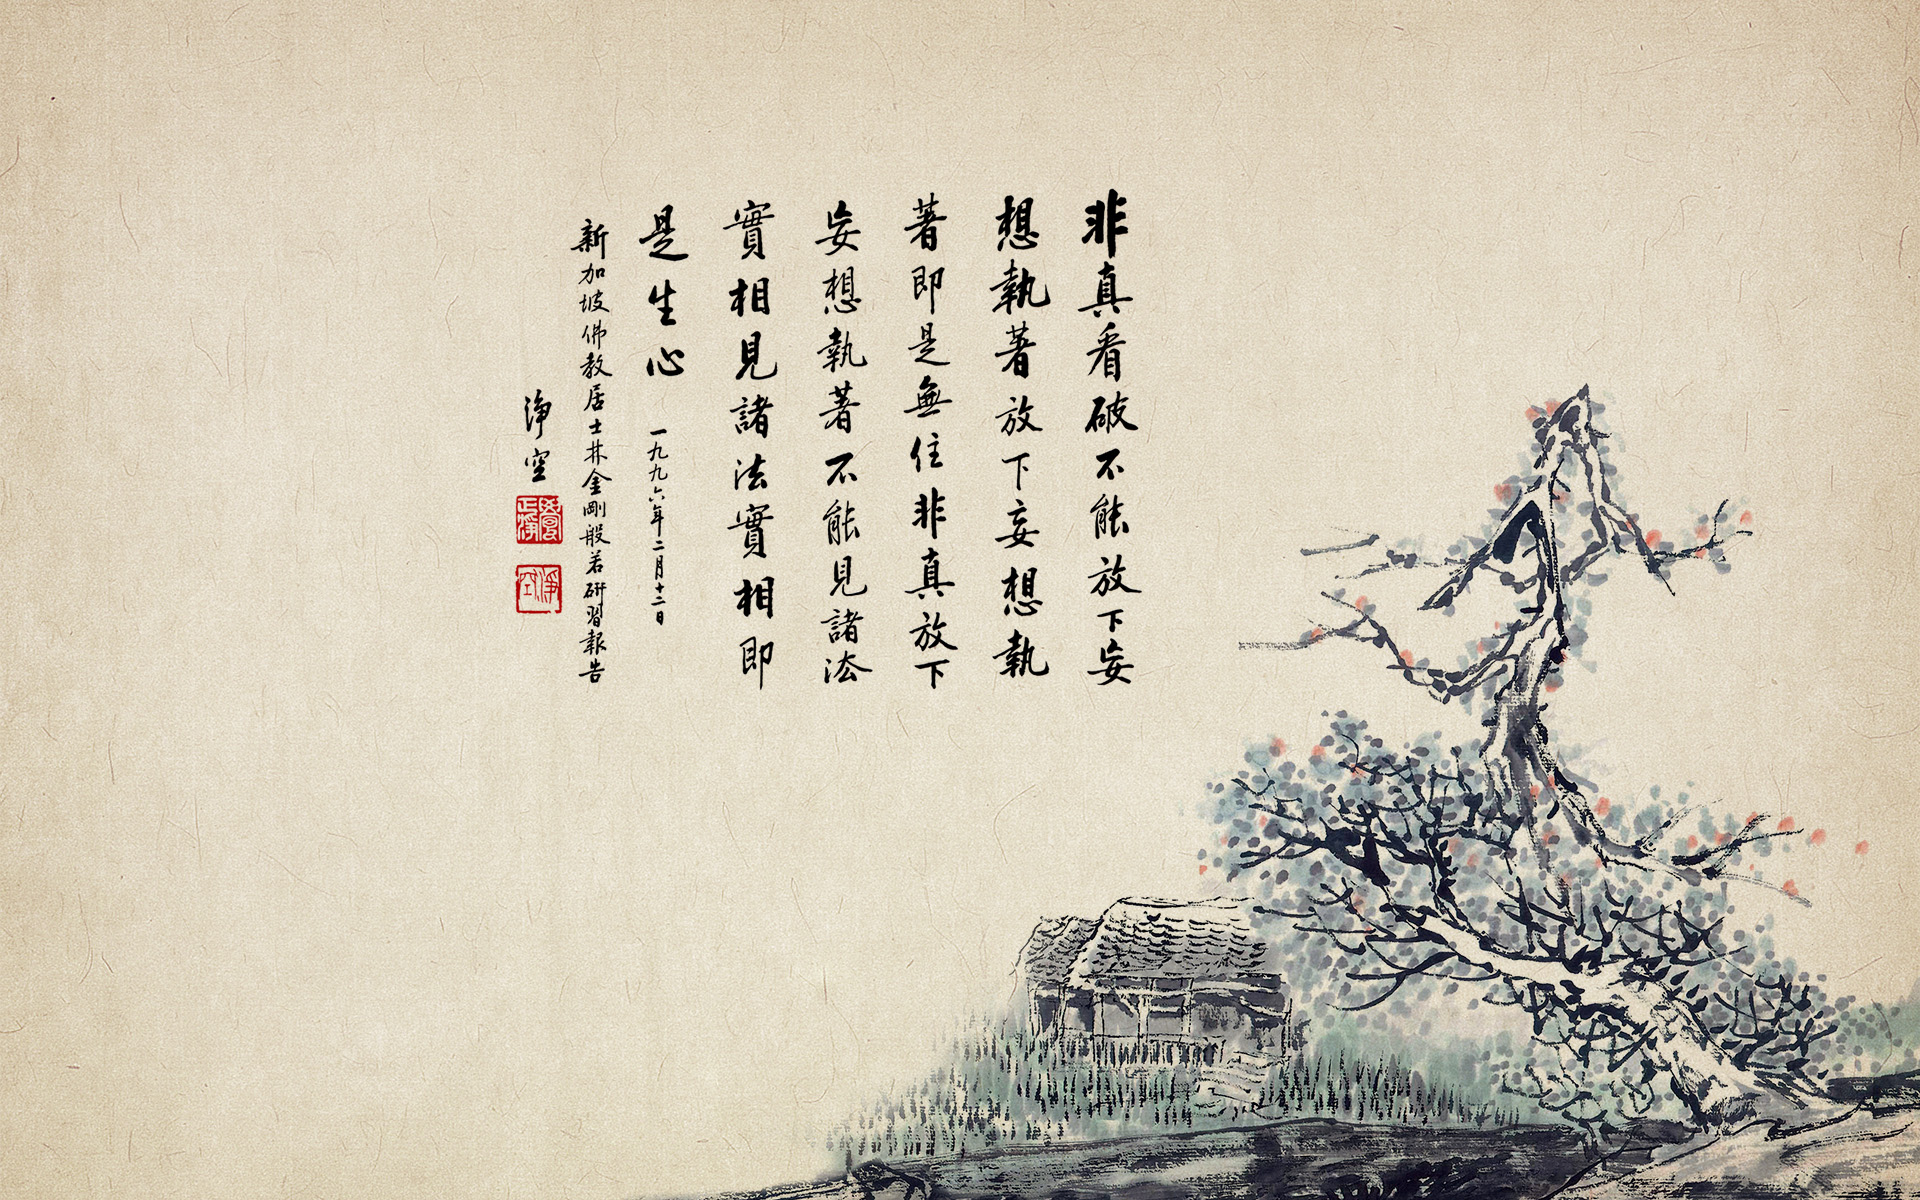 非真看破不能放下妄
想執著放下妄想執
著即是無住非真放下
妄想執著不能見諸法
實相見諸法實相即
是生心
一九九六年二月十二日
新加坡佛教居士林金剛般若研習報告
淨空
淨空